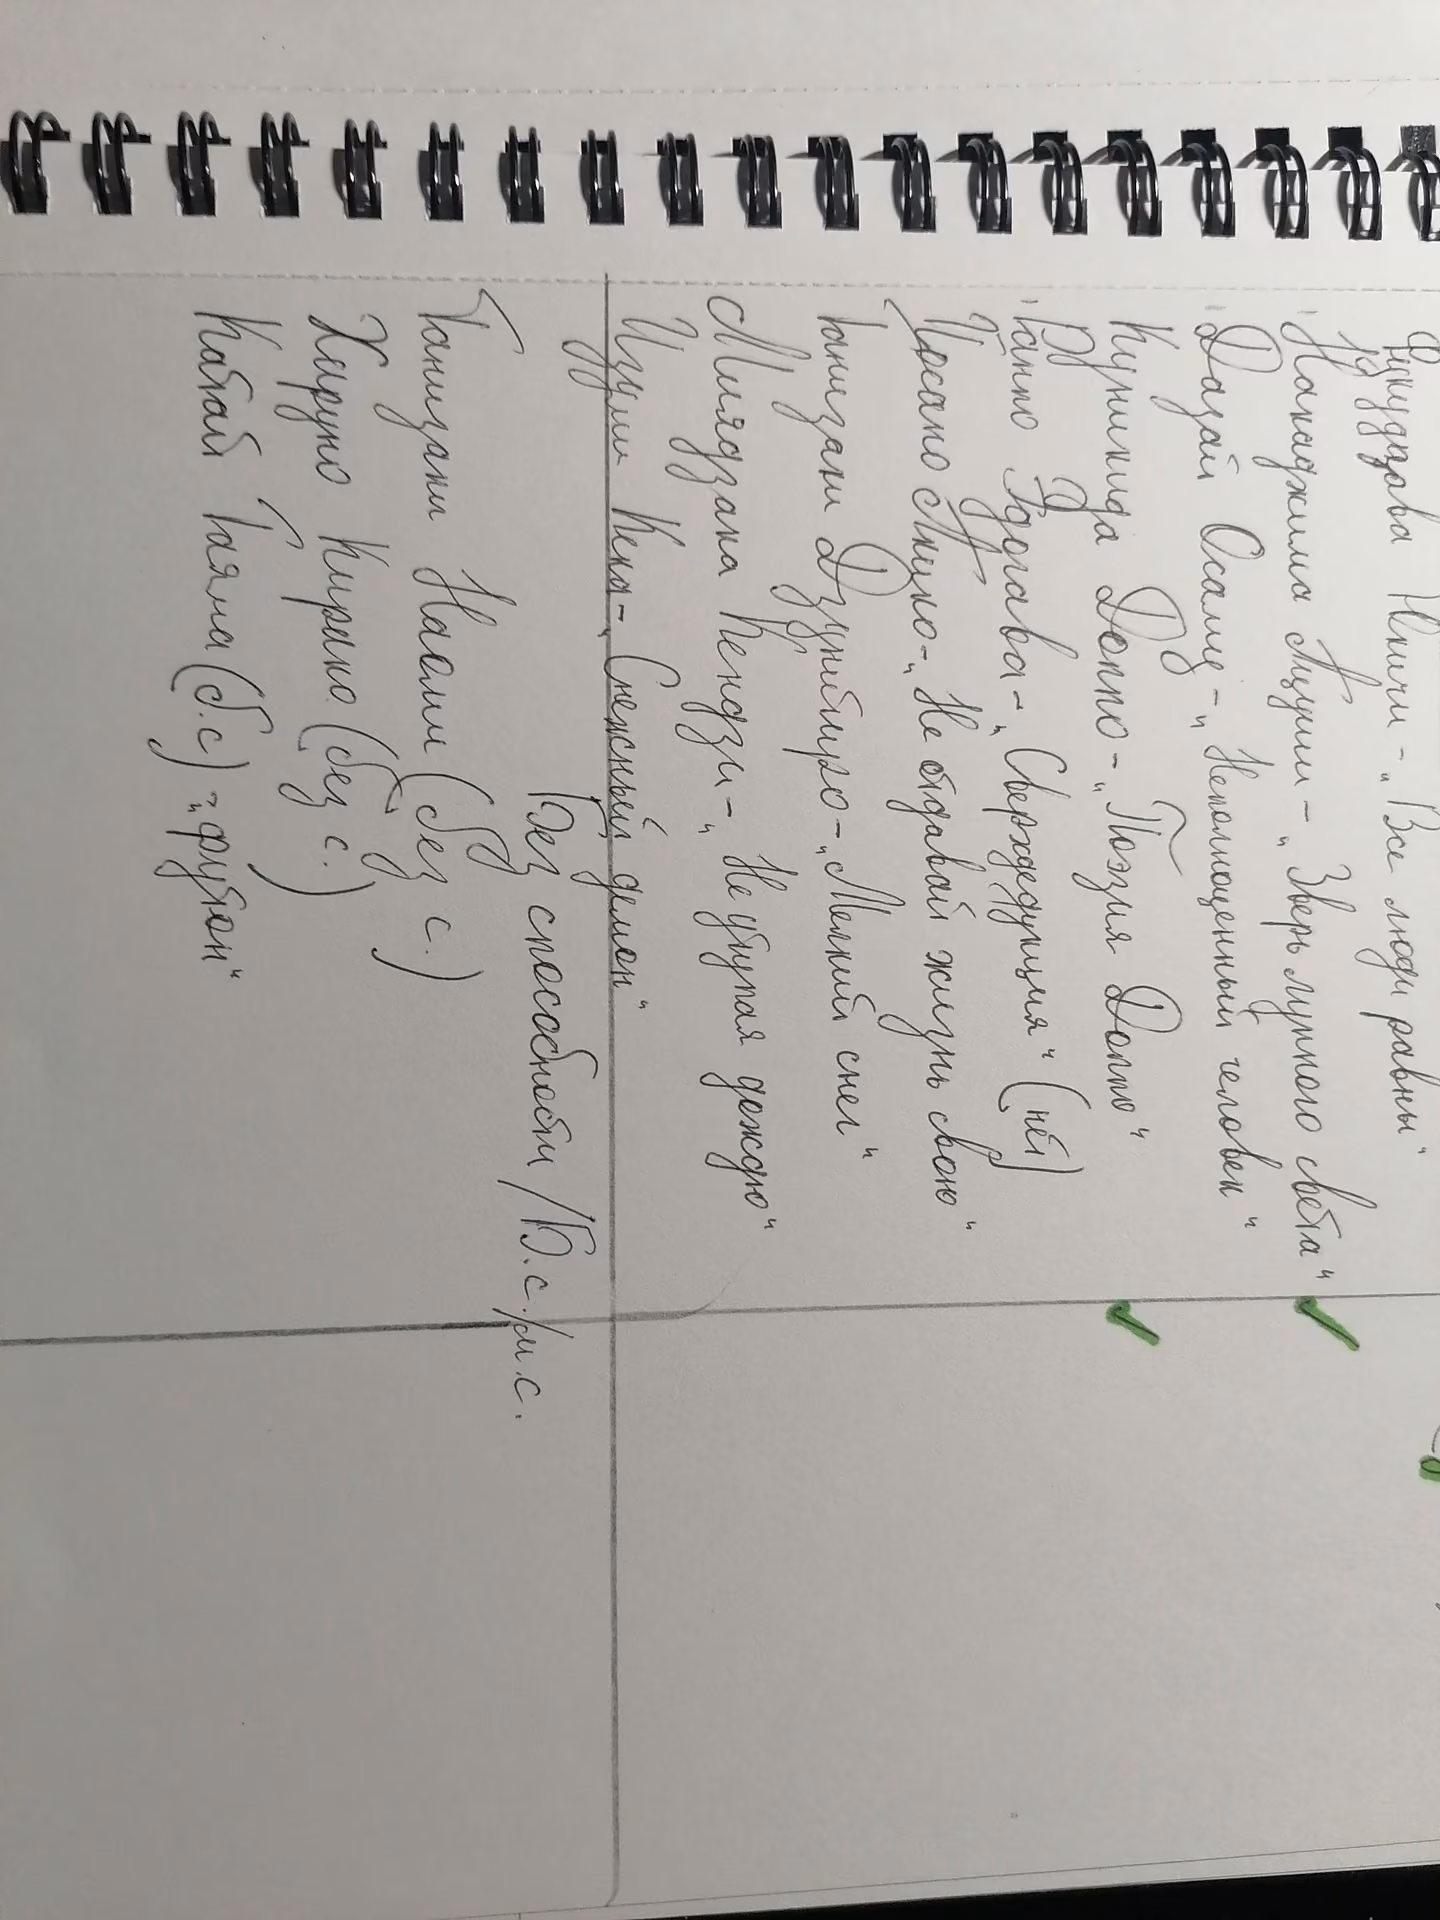 Фукудзава Юкичи - „Все люди равны“
Накаджима Ацуши - „Зверь лунного света“
Дазай Осаму - „Неполноценный человек“
Куникида Доппо - „Поэзия Доппо“
Рампо Эдогава - „Сверхдедукция“ (нет)
Йосано Акико - „Не отдавай жизнь свою“
Танизаки Дзунитиро - „Мелкий снег“
Миядзава Кендзи - „Не уступая дождю“
Изуми Кека - „Снежный демон“
Без способности / Б.с. / м.с.
Танизаки Наоми (без с.)
Харуно Кирако (без с.)
Катай Таяма (б.с) - „футон“